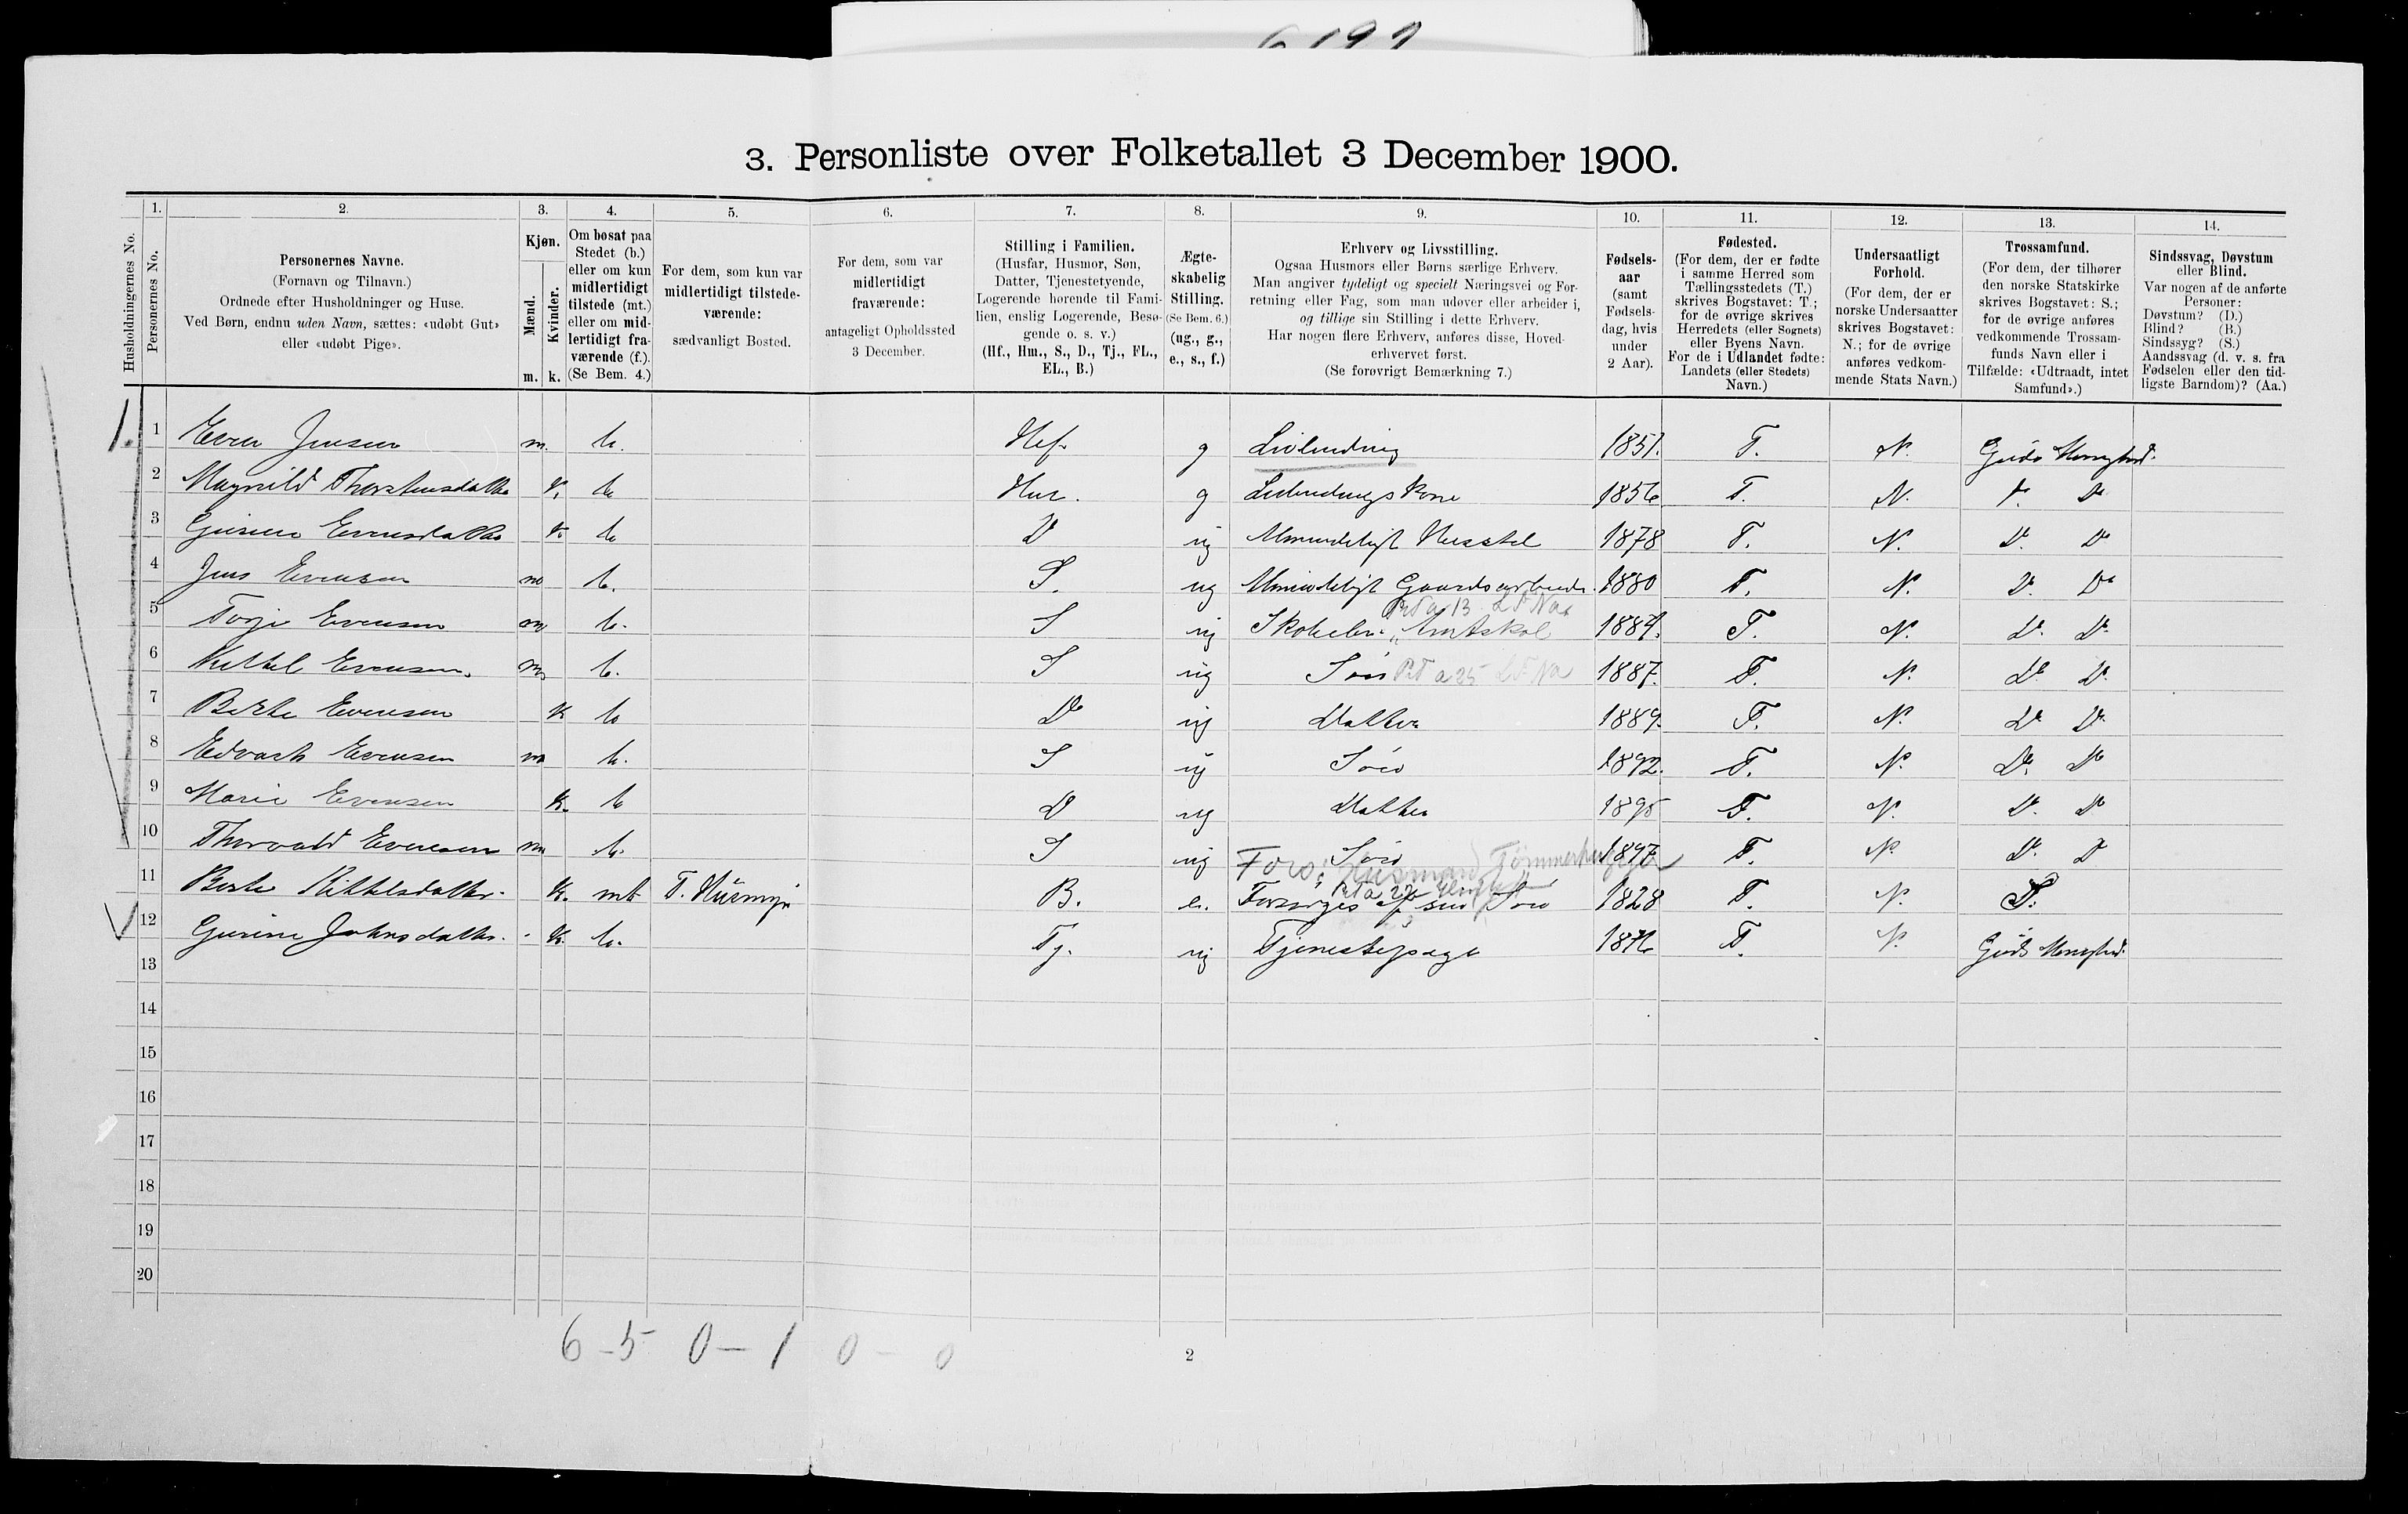 3. Personliste over Folketallet 3 December 1900.
Husholdningernes No.
1. 2. 3. 4. 5. 6. 7. 8. 9. 10. 11. 12. 13. 14.
Personernes No.
Personernes Navne.
(Fornavn og Tilnavn.)
Ordnede efter Husholdninger og Huse.
Ved Børn, endnu uden Navn, sættes: «udøbt Gut»
eller «udøbt Pige».
Kjøn.
Mænd.
Kvinder.
m. k.
Om bosat paa
Stedet (b.)
eller om kun
midlertidigt
tilstede (mt.)
eller om mid-
lertidigt fra-
værende (f.).
(Se Bem. 4.)
For dem, som kun var
midlertidigt tilstede-
værende:
sædvanligt Bosted.
For dem, som var
midlertidigt
fraværende:
antageligt Opholdssted
3 December.
Stilling i Familien.
(Husfar, Husmor, Søn,
Datter, Tjenestetyende,
Logerende hørende til Fami-
lien, enslig Logerende, Besø-
gende o. s. v.)
(Hf., Hm., S., D., Tj., FL.,
EL., B.)
Ægte-
skabelig
Stilling.
(Se Bem. 6.)
(ug., g.,
e., s., f.)
Erhverv og Livsstilling.
Ogsaa Husmors eller Børns særlige Erhverv.
Man angiver tydeligt og specielt Næringsvei og For-
retning eller Fag, som man udøver eller arbeider i,
og tillige sin Stilling i dette Erhverv.
Har nogen flere Erhverv, anføres disse, Hoved-
erhvervet først.
(Se forøvrigt Bemærkning 7.)
Fødsels-
aar
(samt
Fødsels-
dag, hvis
under
2 Aar).
Fødested.
(For dem, der er fødte
i samme Herred som
Tællingsstedets (T.)
skrives Bogstavet: T.;
for de øvrige skrives
Herredets (eller Sognets)
eller Byens Navn.
For de i Udlandet fødte:
Landets (eller Stedets)
Navn.)
Undersaatligt
Forhold.
(For dem, der er
norske Undersaatter
skrives Bogstavet:
N.; for de øvrige
anføres vedkom-
mende Stats Navn.)
Trossamfund.
(For dem, der tilhører
den norske Statskirke
skrives Bogstavet: S.;
for de øvrige anføres
vedkommende Trossam-
funds Navn eller i
Tilfælde: «Udtraadt, intet
Samfund».)
Sindssvag, Døvstum
eller Blind.
Var nogen af de anførte
Personer:
Døvstum? (D.)
Blind? (B.)
Sindssyg? (S.)
Aandssvag (d. v. s. fra
Fødselen eller den tid-
ligste Barndom)? (Aa.)
1. 1 Even Jensen m. b. g 1851. T. N.
2 Thorstensdatter k. b g 1856 T. N. D. D
3 Evensdatter k b D ug Almindeligt Husstel 1878 T. N. D. D
4 Jens Evensen m b. S. ug Almindeligt Gaardsarbeide. 1880 T. N. D. D
5 Evensen m b. S ug Amtskol T. N. D. D.
6 Kittel Evensen. m b. S ug Søn 1887. T. N. D. D.
7 Evensen k b D ug Datter 1889. T. N. D. D.
8 Evensen m b. S ug Søn 1892. T. N. D. D
9 Marie Evensen k. b D ug Datter 1895 T. N. D. D
10 Thorvald Evensen m b. S ug Søn 1897. T. N. D. D
Husmand
11 Kittelsdatter. k. mt T. B. e. Forsørges af sin Søn 1828 T. N. S.
12 k. b. Tj. ug Tjenestepige 1876 T. N.
13
14
15
16
17
18
19
20
6 - 5 0 - 1 0 - 0
2